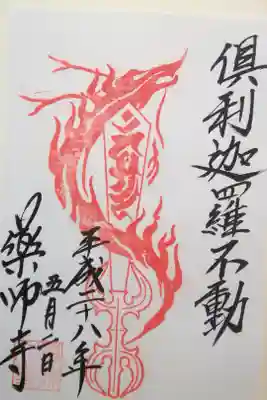 倶利迦羅不動
平成二十八年
五月二日
薬師寺